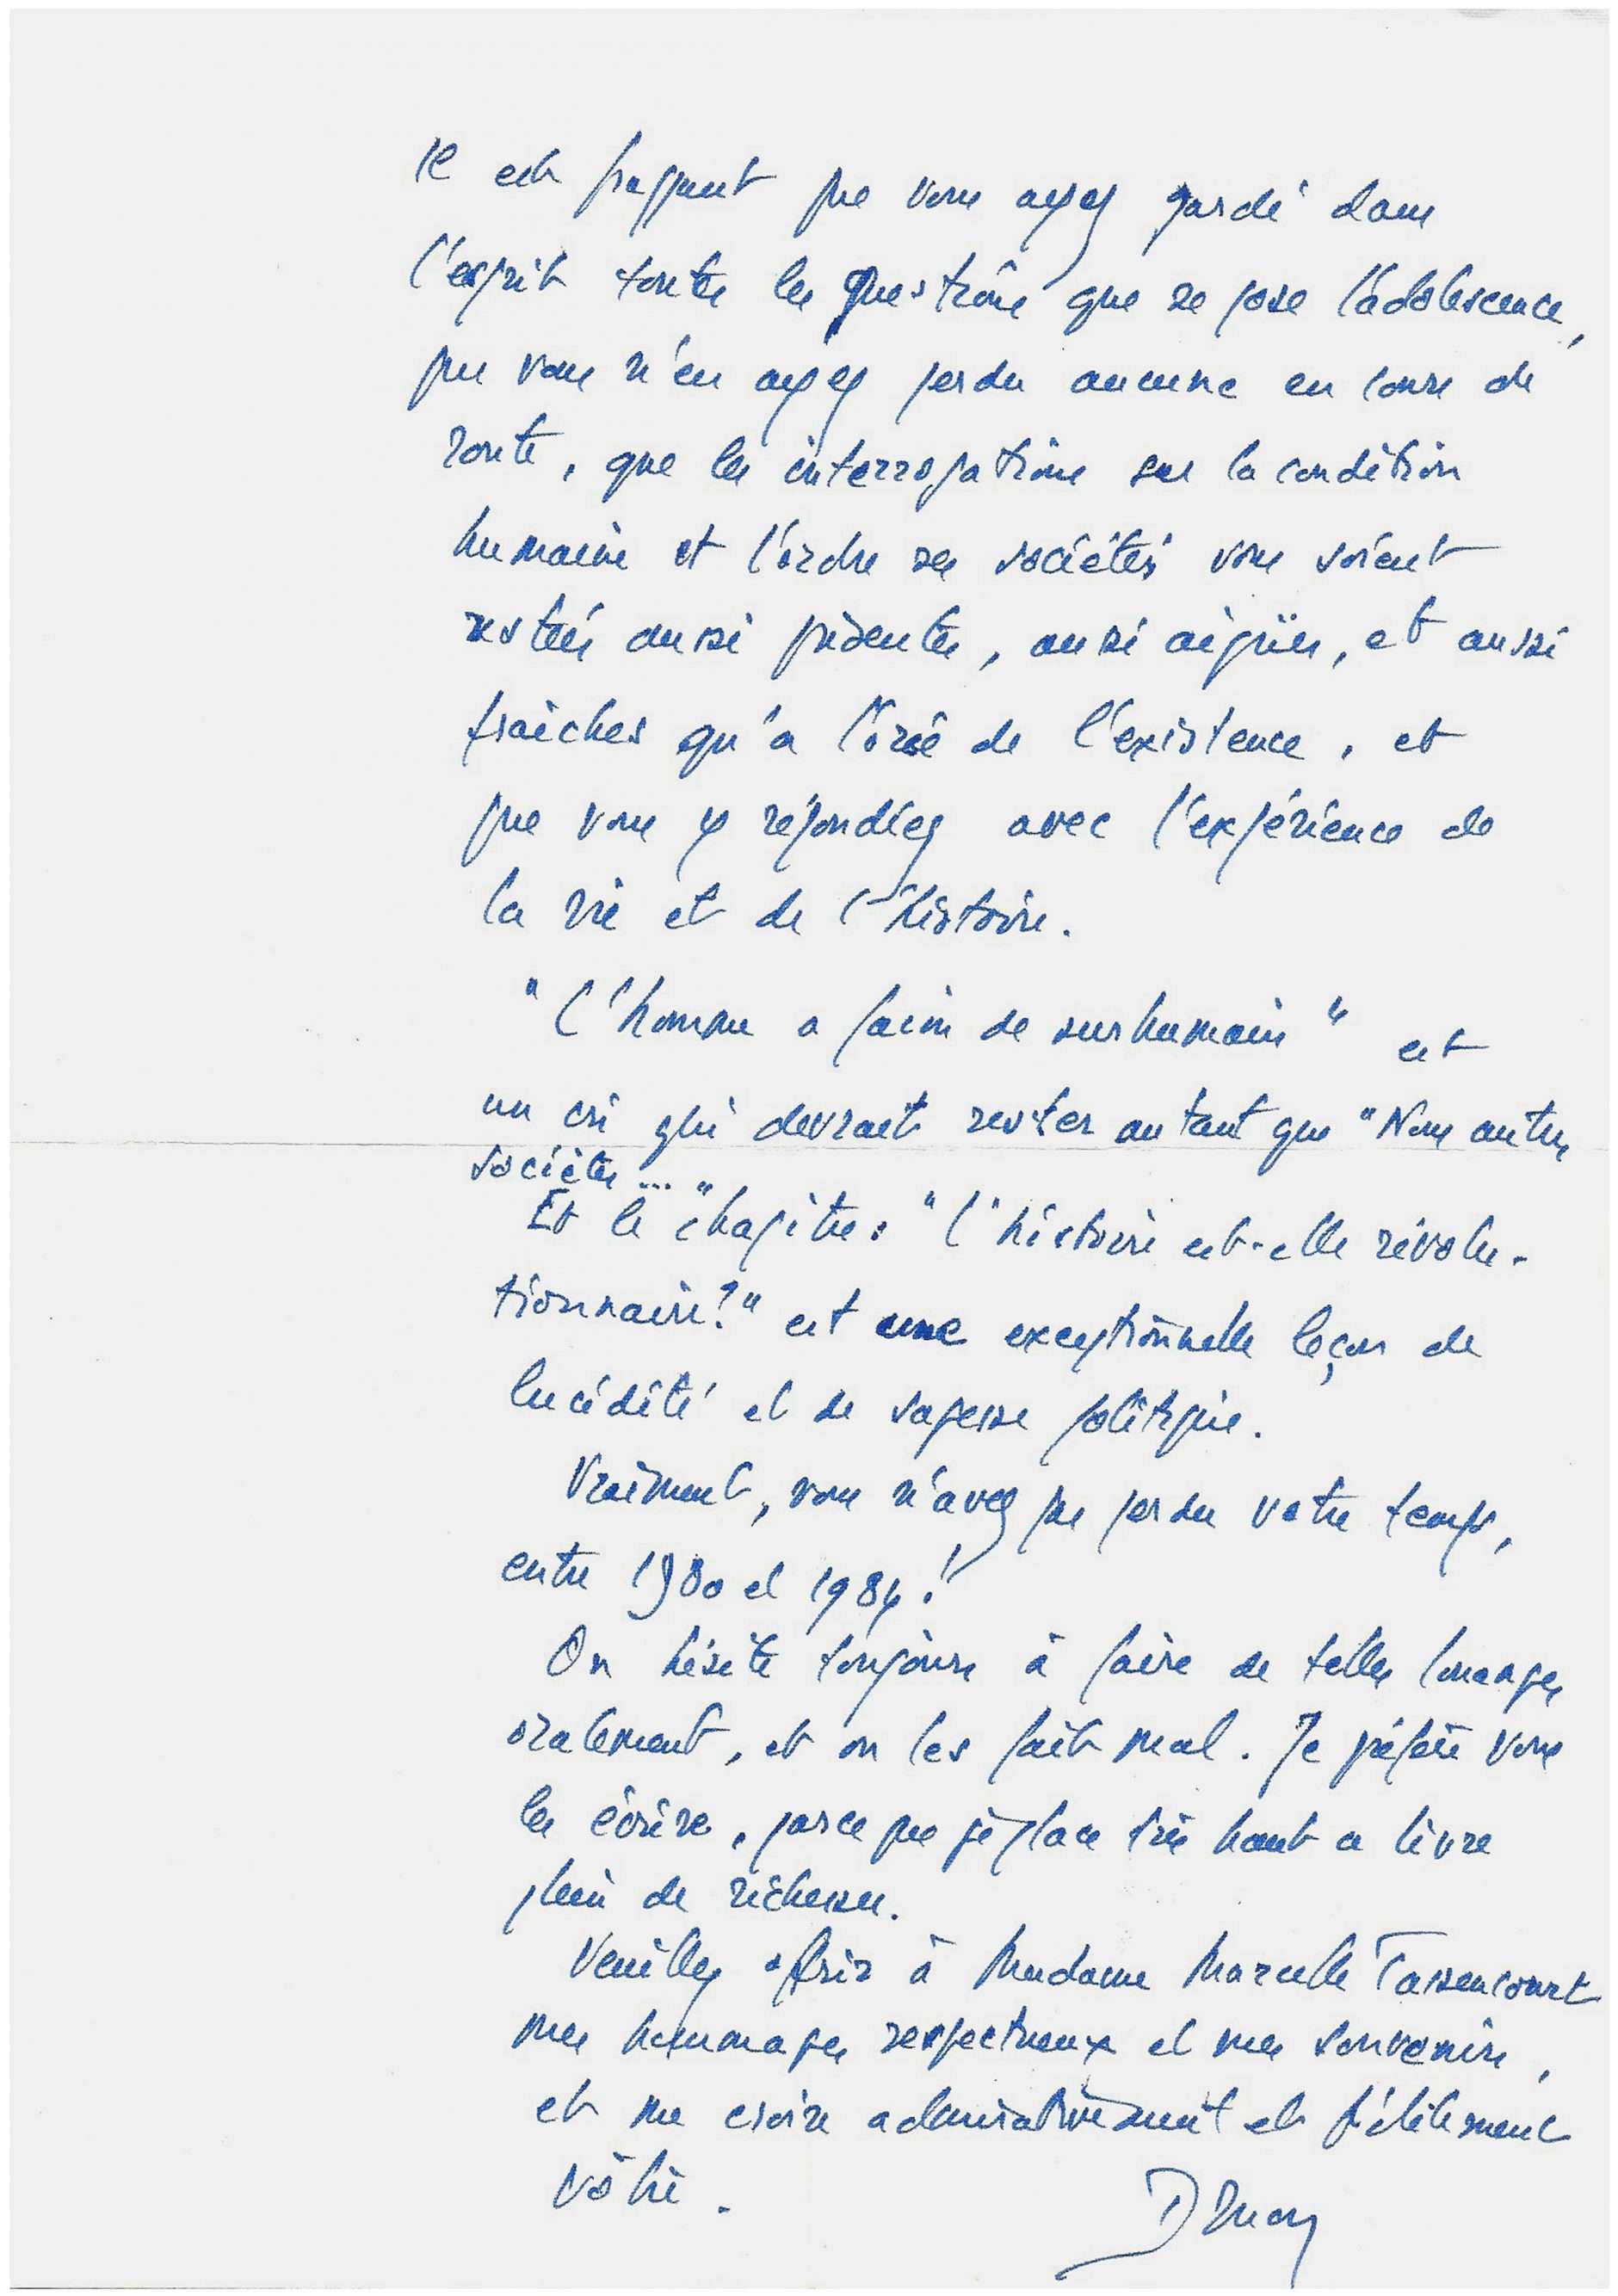 Il est frappant que vous ayez gardé dans
l'esprit toutes les questions que se pose l'adolescence,
que vous n'en ayez perdu aucune en cours de
route, que les interrogations sur la condition
humaine et l'ordre des sociétés vous soient
restées aussi présentes, aussi aigües, et aussi
fraîches qu'à l'orée de l'existence, et
que vous y répondiez avec l'expérience de
la vie et de l'histoire.
"L'homme a faim de surhumain" est
un cri qui devrait rester autant que "Nous autres
sociétés..."
Et le chapitre : "L'histoire est-elle révolu-
tionnaire ?" est une exceptionnelle leçon de
lucidité et de sagesse politique.
Vraiment, vous n'avez pas perdu votre temps,
entre 1980 et 1984 !
On hésite toujours à faire de telles louanges
oralement, et on les fait mal. Je préfère vous
les écrire, parce que je place très haut ce livre
plein de richesses.
Veuillez offrir à Madame Marcelle Tassencourt
mes hommages respectueux et mes souvenirs,
et me croire admirativement et fidèlement
vôtre.
Druon